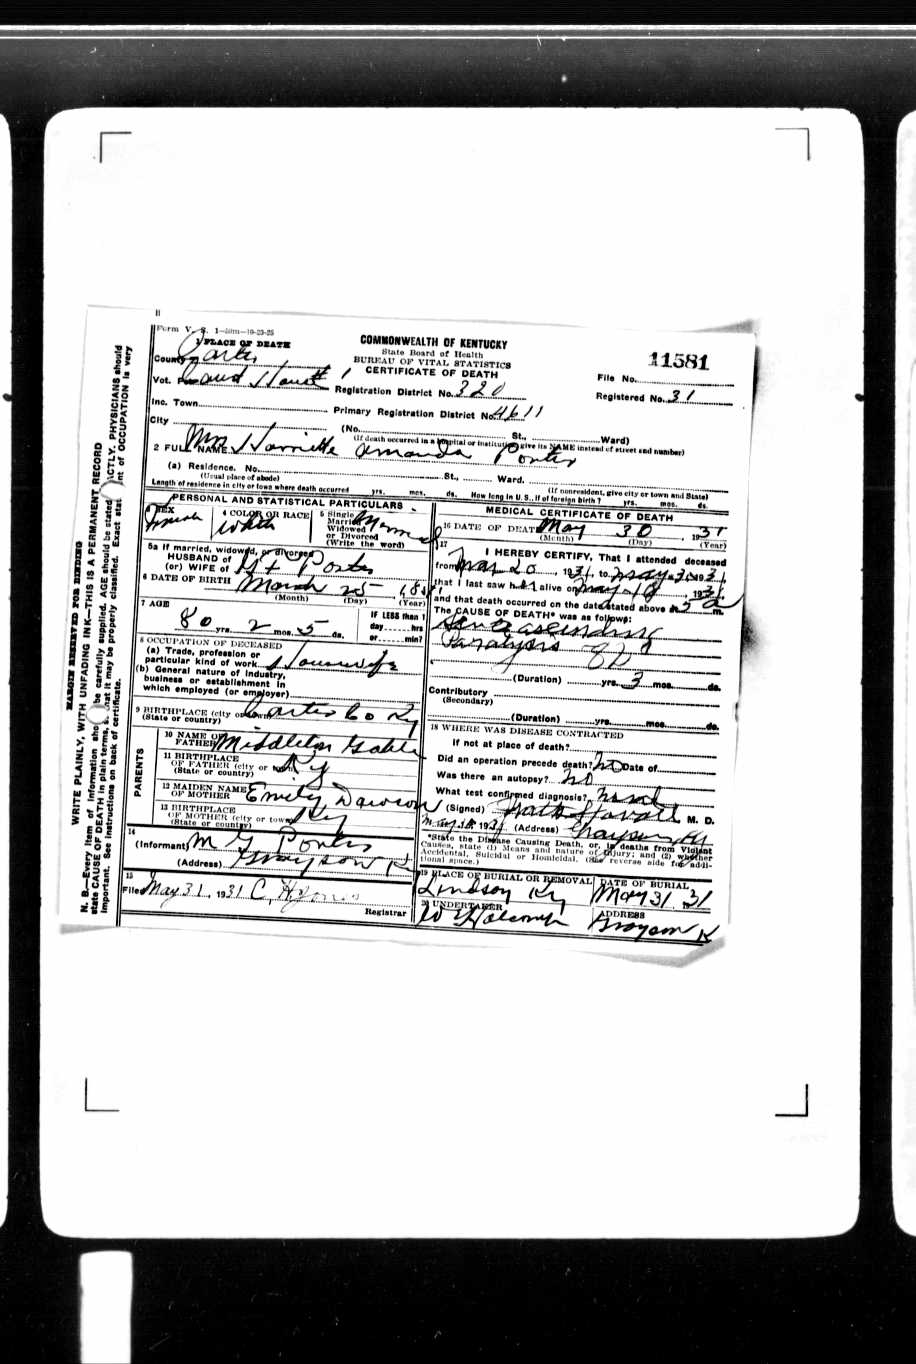 Form V. S. 1—50m—10-23-25
1 PLACE OF DEATH
County Carter
Vot. Pct. Court House # 1
Inc. Town
City
COMMONWEALTH OF KENTUCKY
State Board of Health
BUREAU OF VITAL STATISTICS
CERTIFICATE OF DEATH
Registration District No. 320
Primary Registration District No. 4611
File No.
11581
Registered No. 31
(No. St., Ward)
(If death occurred in a hospital or institution, give its NAME instead of street and number)
2 FULL NAME Mrs Harriette Amanda Porter
(a) Residence. No. St., Ward.
(Usual place of abode) (If nonresident, give city or town and State)
Length of residence in city or town where death occurred yrs. mos. ds. How long in U. S., if of foreign birth? yrs. mos. ds.
PERSONAL AND STATISTICAL PARTICULARS
SEX Female
4 COLOR OR RACE White
5 Single
Married
Widowed
or Divorced
(Write the word)
Married
5a If married, widowed, or divorced
HUSBAND of
(or) WIFE of Porter
6 DATE OF BIRTH March 25
(Month) (Day) (Year)
7 AGE
80 yrs. 2 mos. 5 ds.
IF LESS than 1
day hrs
or min?
8 OCCUPATION OF DECEASED
(a) Trade, profession or
particular kind of work Housewife
(b) General nature of industry,
business or establishment in
which employed (or employer)
9 BIRTHPLACE (city or town) Carter Co Ky
(State or country)
PARENTS
10 NAME OF
FATHER Middleton Gable
11 BIRTHPLACE
OF FATHER (city or town) Ky
(State or country)
12 MAIDEN NAME
OF MOTHER Emily Dawson
13 BIRTHPLACE
OF MOTHER (city or town) Ky
(State or country)
14
(Informant) M G Porter
(Address) Grayson Ky
15
Filed May 31, 1931 C. H. Jones
Registrar
MEDICAL CERTIFICATE OF DEATH
16 DATE OF DEATH May 30, 1931
(Month) (Day) (Year)
17
I HEREBY CERTIFY, That I attended deceased
from Mar 20, 1931, to May 31, 1931,
that I last saw her alive on May 18, 1931,
and that death occurred on the date stated above at 5 a m.
The CAUSE OF DEATH* was as follows:
Acute ascending
Paralysis
(Duration) yrs. 3 mos. ds.
Contributory
(Secondary)
(Duration) yrs. mos. ds.
18 WHERE WAS DISEASE CONTRACTED
If not at place of death?
Did an operation precede death? No Date of
Was there an autopsy? No
What test confirmed diagnosis?
(Signed) M. D.
1931 (Address) Grayson, Ky
*State the Disease Causing Death, or, in deaths from Violent
Causes, state (1) Means and nature of Injury; and (2) whether
Accidental, Suicidal or Homicidal. (See reverse side for addi-
tional space.)
19 PLACE OF BURIAL OR REMOVAL
Lindsay Ky
DATE OF BURIAL
May 31, 1931
20 UNDERTAKER
ADDRESS
Grayson K
MARGIN RESERVED FOR BINDING
WRITE PLAINLY, WITH UNFADING INK—THIS IS A PERMANENT RECORD
N. B.—Every item of information should be carefully supplied. AGE should be stated EXACTLY. PHYSICIANS should
state CAUSE OF DEATH in plain terms, so that it may be properly classified. Exact statement of OCCUPATION is very
important. See instructions on back of certificate.